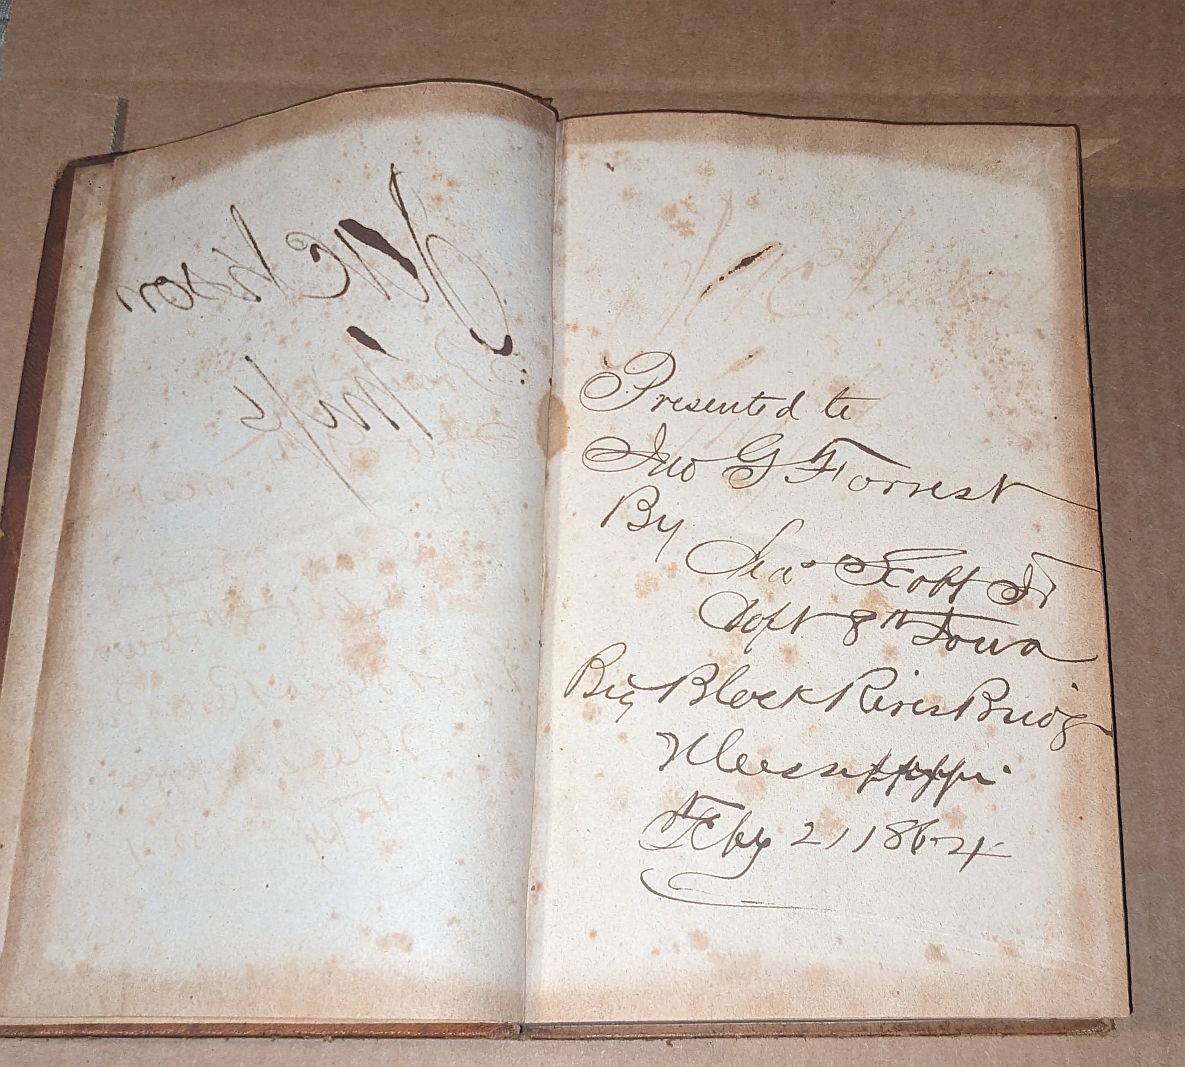 Presented to
Jno G Forrest
By
Geo Scott Jr
Sgt 8th Iowa
Big Black River Bridg
Mississippi
Feby 21 1864